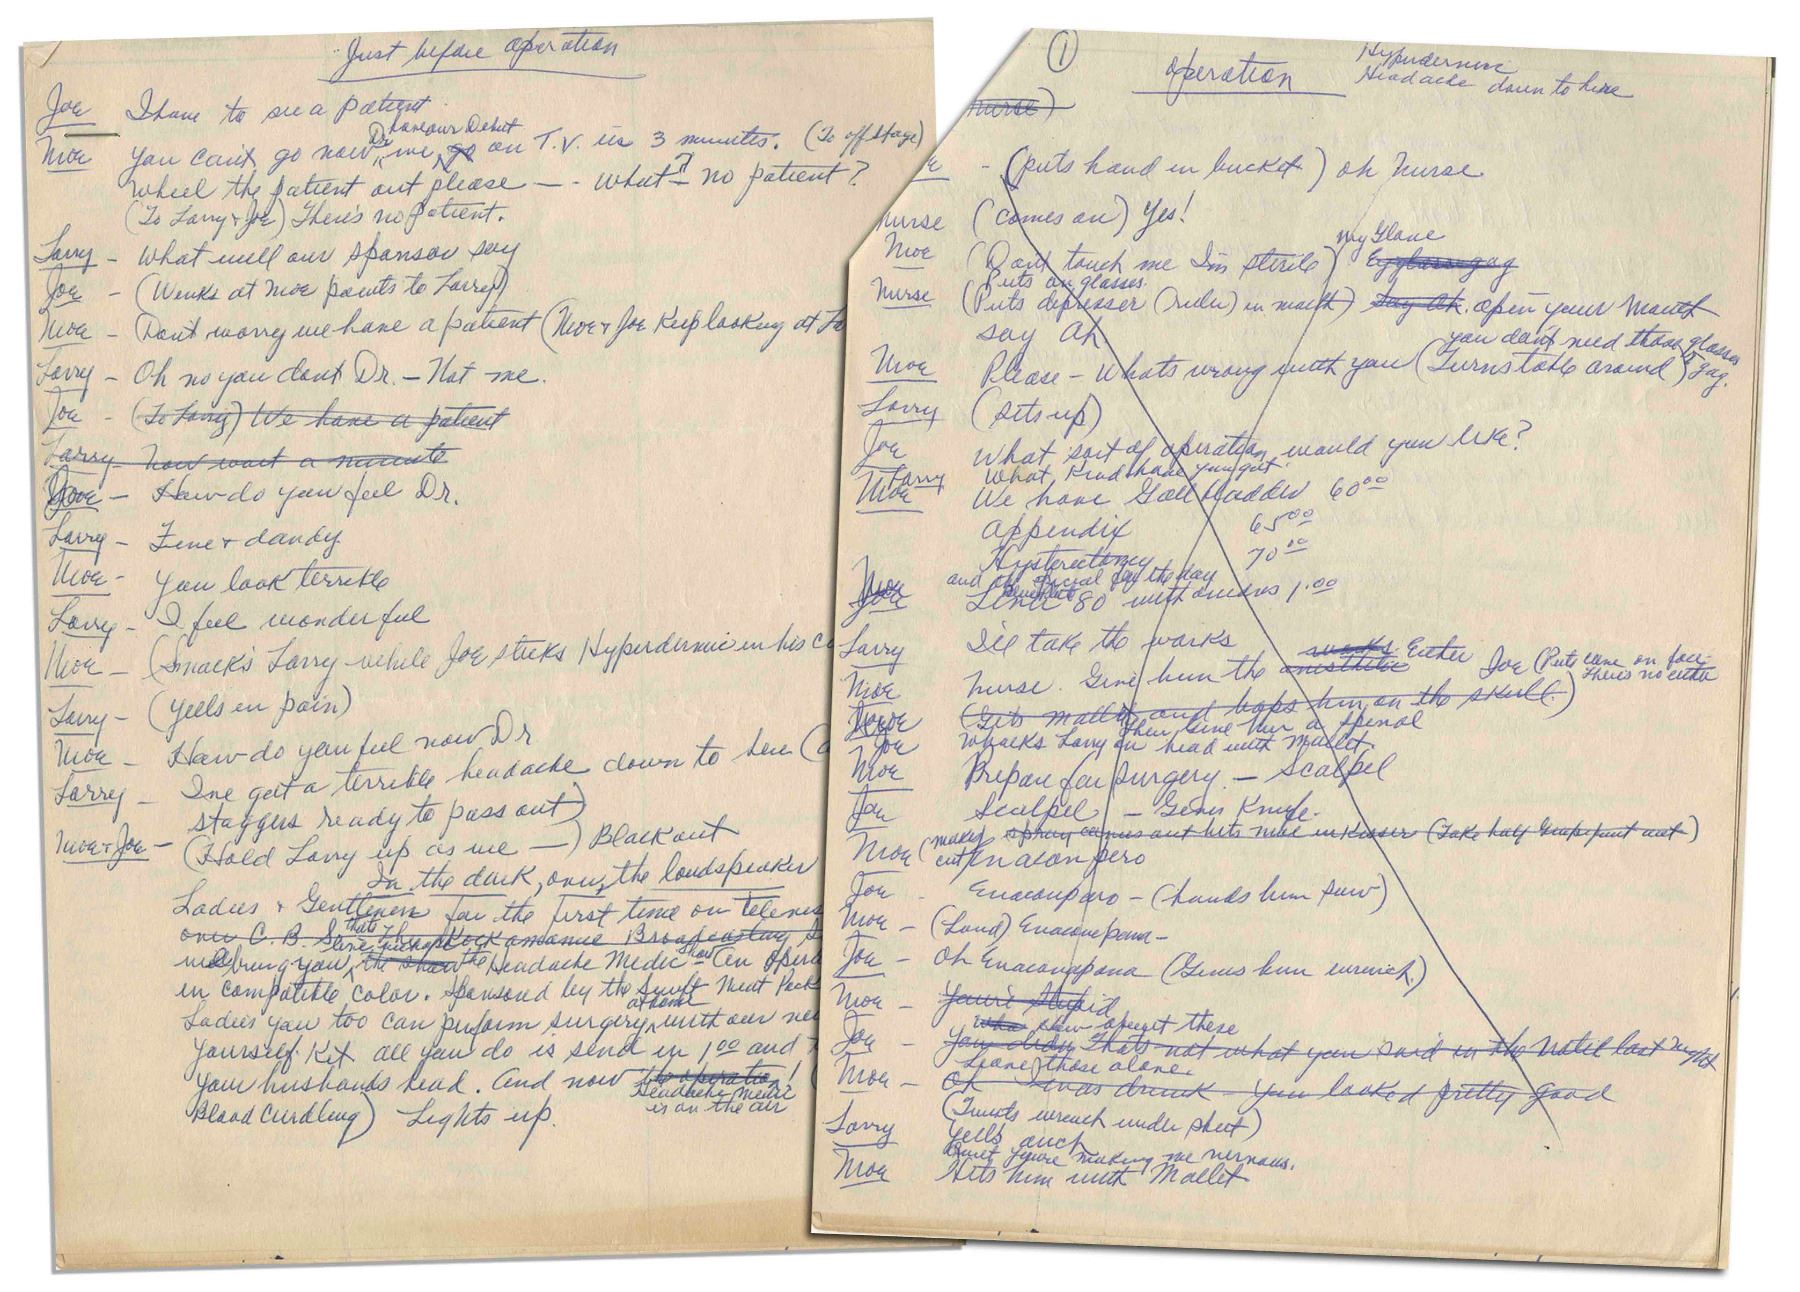 Just before operation
Joe I have to see a patient
Dr have our Debut
Moe You can't go now, me, go on T.V. in 3 minutes. (To off stage)
wheel the patient out please — - what - no patient?
(To Larry + Joe) There's no patient.
Larry - What will our sponsor say
Joe - (Winks at Moe points to Larry)
Moe - Dont worry we have a patient (Moe + Joe Keep looking at La
Larry - Oh no you dont Dr. - Not me.
Joe - (To Larry) We have a patient
Larry - Now wait a minute
Joe - How do you feel Dr.
Larry - Fine + dandy
Moe - You look terrible
Larry - I feel wonderful
Moe - (Smack's Larry while Joe sticks Hyperdermic in his c
Larry - (yells in pain)
Moe - How do you feel now Dr
Larry - I've got a terrible headache down to here (
staggers ready to pass out)
Moe + Joe - (Hold Larry up as we —) Blackout
In the dark, over the loudspeaker
Ladies + Gentlemen for the first time on Televis
over C.B.S. thats The Rockamanie Broadcasting
we bring you, the show the Headache Medic show an opera
in compatible color. Sponsored by the Swift Meat Pack
at home
Ladies you too can perform surgery, with our new
yourself Kit all you do is send in 1.00 and
your husbands head. And now the operation! (
Headache Medic
is on the air
Blood Curdling) Lights up.
1
operation
Hyperdermic
Headache down to here
nurse)
- (puts hand in bucket) oh Nurse
nurse (comes on) Yes!
my Glove
Moe (Dont touch me I'm sterile) Eyglass gag
Puts on glasses
Nurse (Puts depresser (ruler) in mouth) Say Ah. open your mouth
say Ah
you dont need those glasses
Moe Please - Whats wrong with you (Turns table around) gag.
Larry (sits up)
Joe What sort of operation, would you like?
Larry What kind have you got
Moe We have Gall bladder 60.00
appendix 65.00
Hysterectomey 70.00
and the special for the day
Moe Joe 80 with onions 1.00
Larry I'll take the works
Moe Nurse. Give him the anisthetic works Either Joe (Puts cane on foot
There's no either
(Gets mallet and bops him on the skull.)
Then Give him a spinal
Joe Whacks Larry on head with Mallet.
Moe Prepare for surgery - Scalpel
Joe Scalpel - Gives Knife.
Moe (makes cut) spray comes out hits Moe in Kisser (Take half Grapefruit out)
Enaconpero
Joe Enaconparo - (hands him saw)
Moe - (Loud) Enaconpana -
Joe - Oh Enaconapana (Gives him wrench)
Moe - You're stupid
these
Joe - Thats not what you said in the Hotel last night
Leave those alone.
Moe - Oh I was drunk - You looked pretty good
(Twists wrench under sheet)
Larry Yells ouch
Quiet you're making me nervous.
Moe Hits him with Mallet